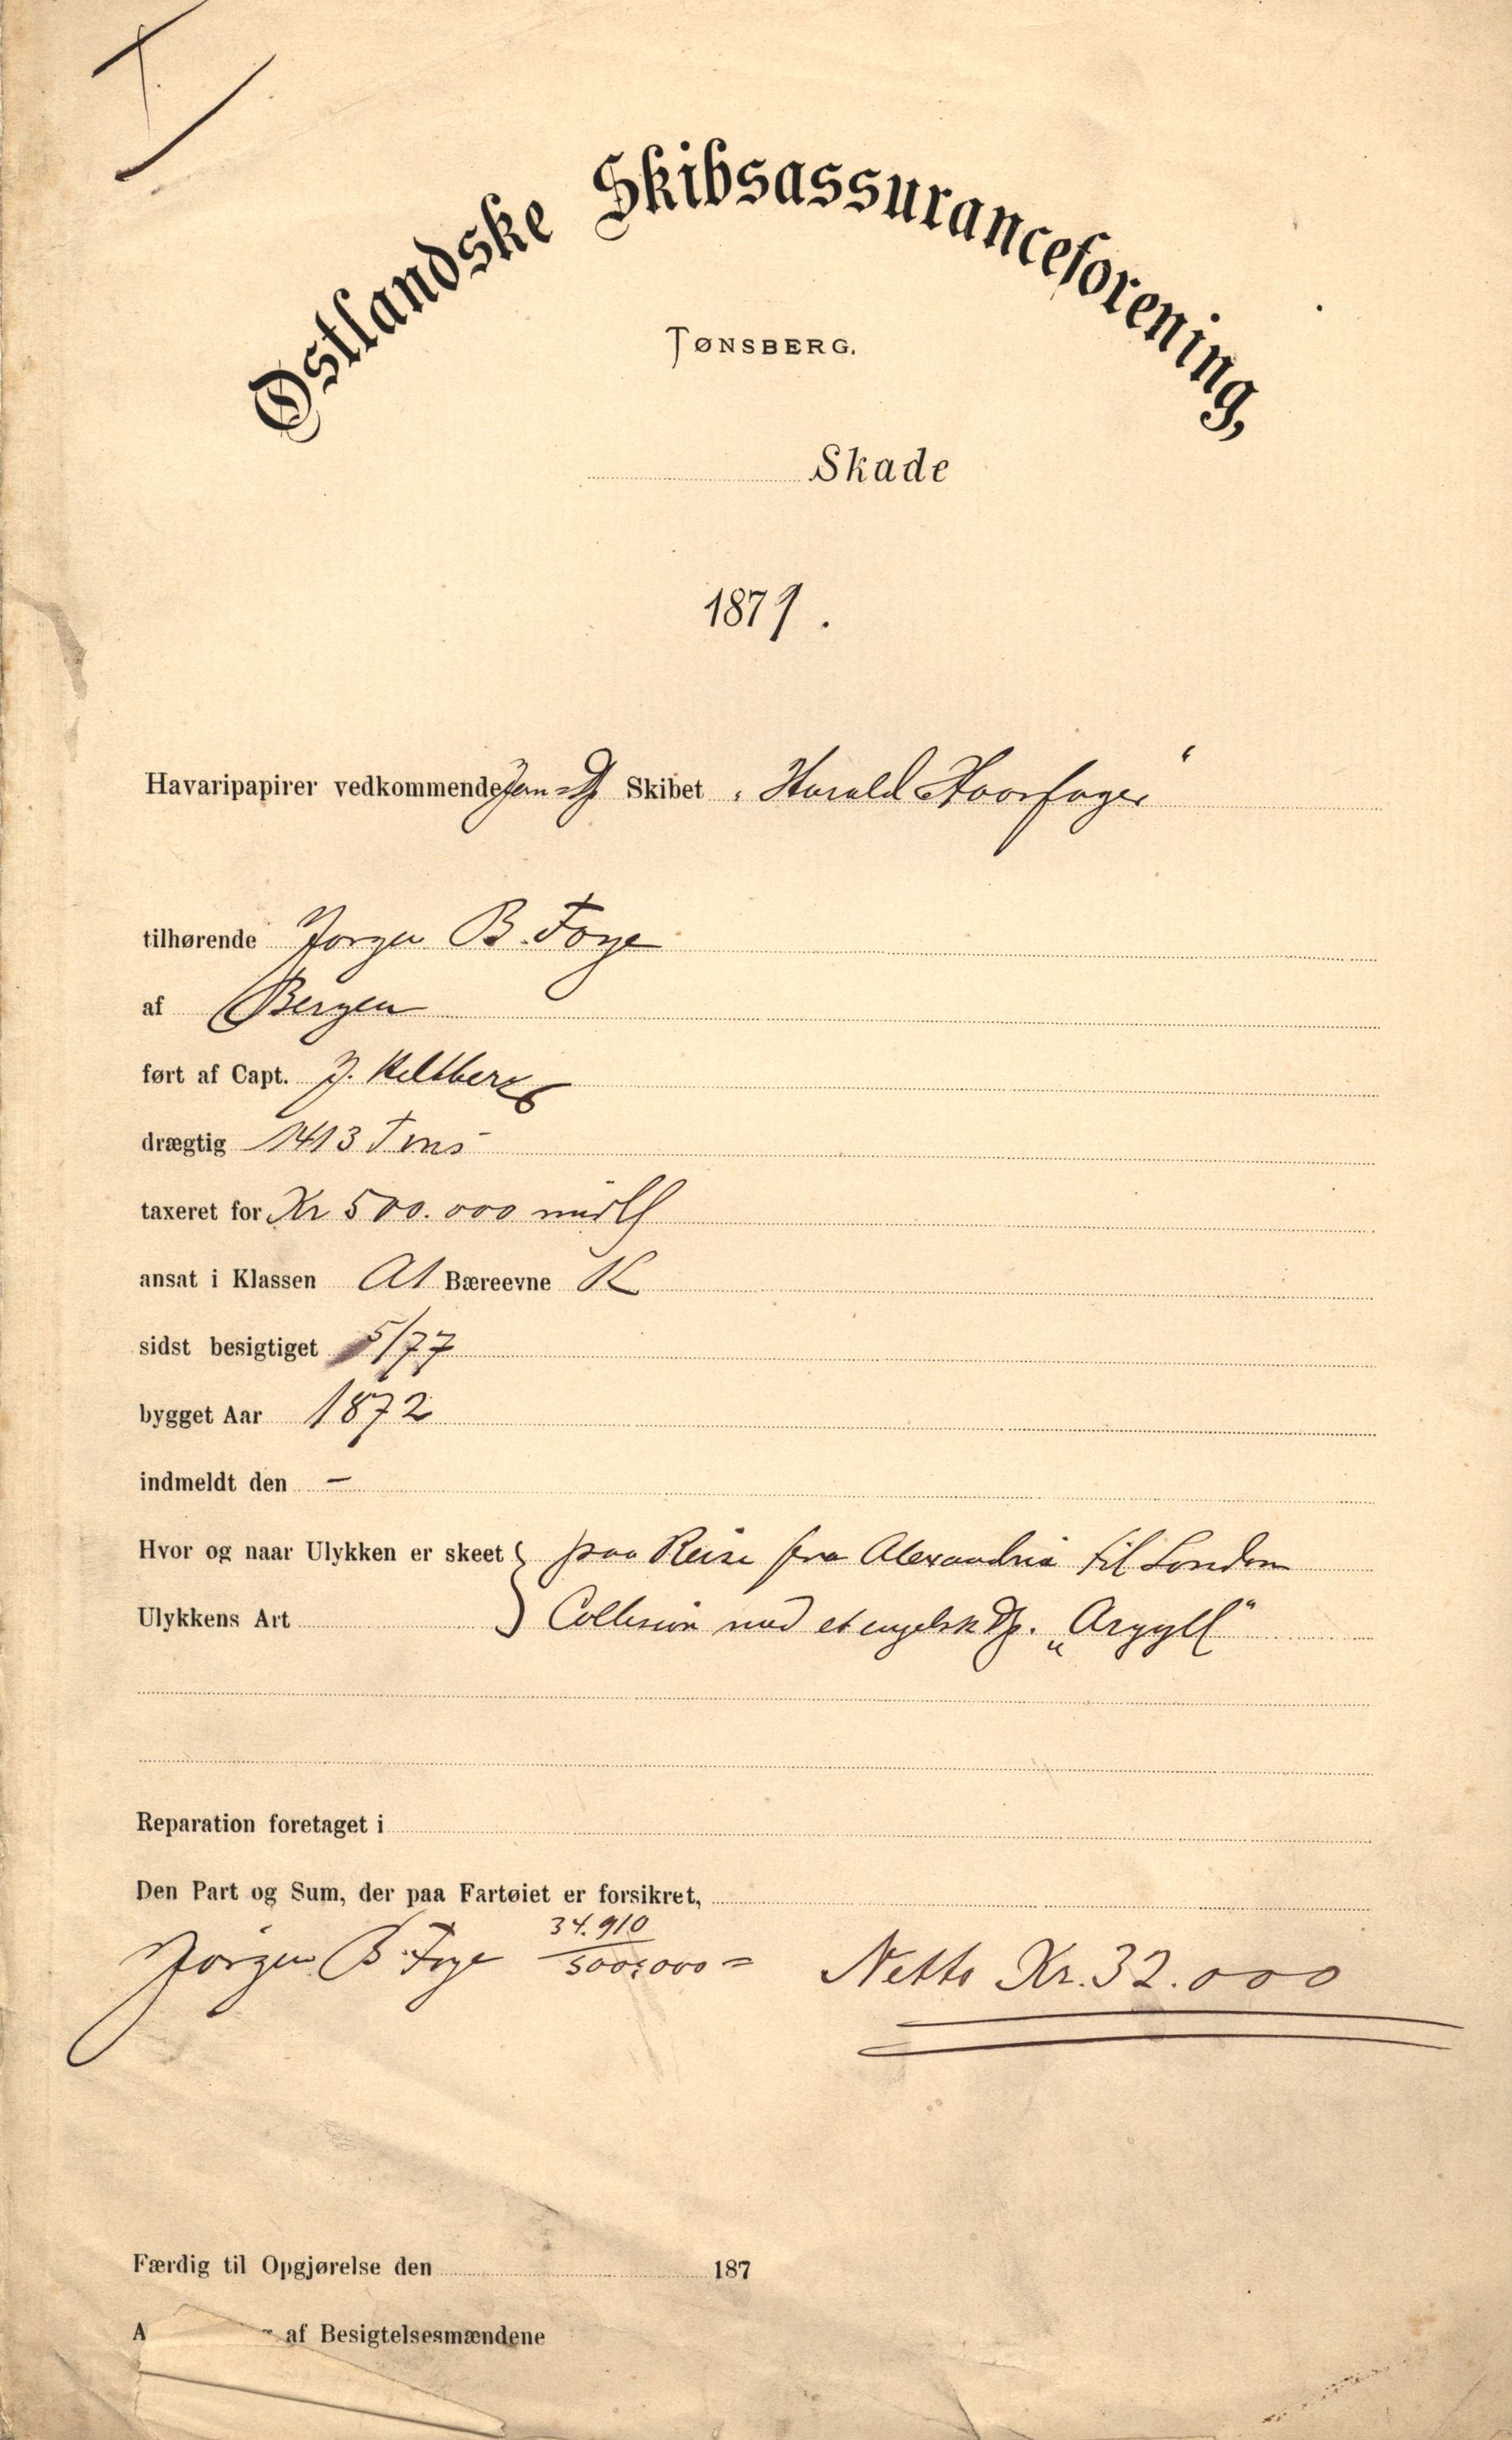 Østlandske Skibsassuranceforening,
TØNSBERG.
Skade
1879.
Havaripapirer vedkommende Jern-D/S Skibet „Harald Haarfager“
tilhørende Jørgen B. Faye
af Bergen
ført af Capt. J. Heltberg
drægtig 1413 Tons
taxeret for Kr 500.000
ansat i Klassen A1 Bæreevne K
sidst besigtiget 5/77
bygget Aar 1872
indmeldt den —
Hvor og naar Ulykken er skeet } paa Reise fra Alexandria til London
Ulykkens Art } Collision med et engelsk D/S. „Argyll“
Reparation foretaget i
Den Part og Sum, der paa Fartøiet er forsikret,
Jørgen B. Faye 34.910/500.000 = Netto Kr. 32.000
Færdig til Opgjørelse den 187
A af Besigtelsesmændene